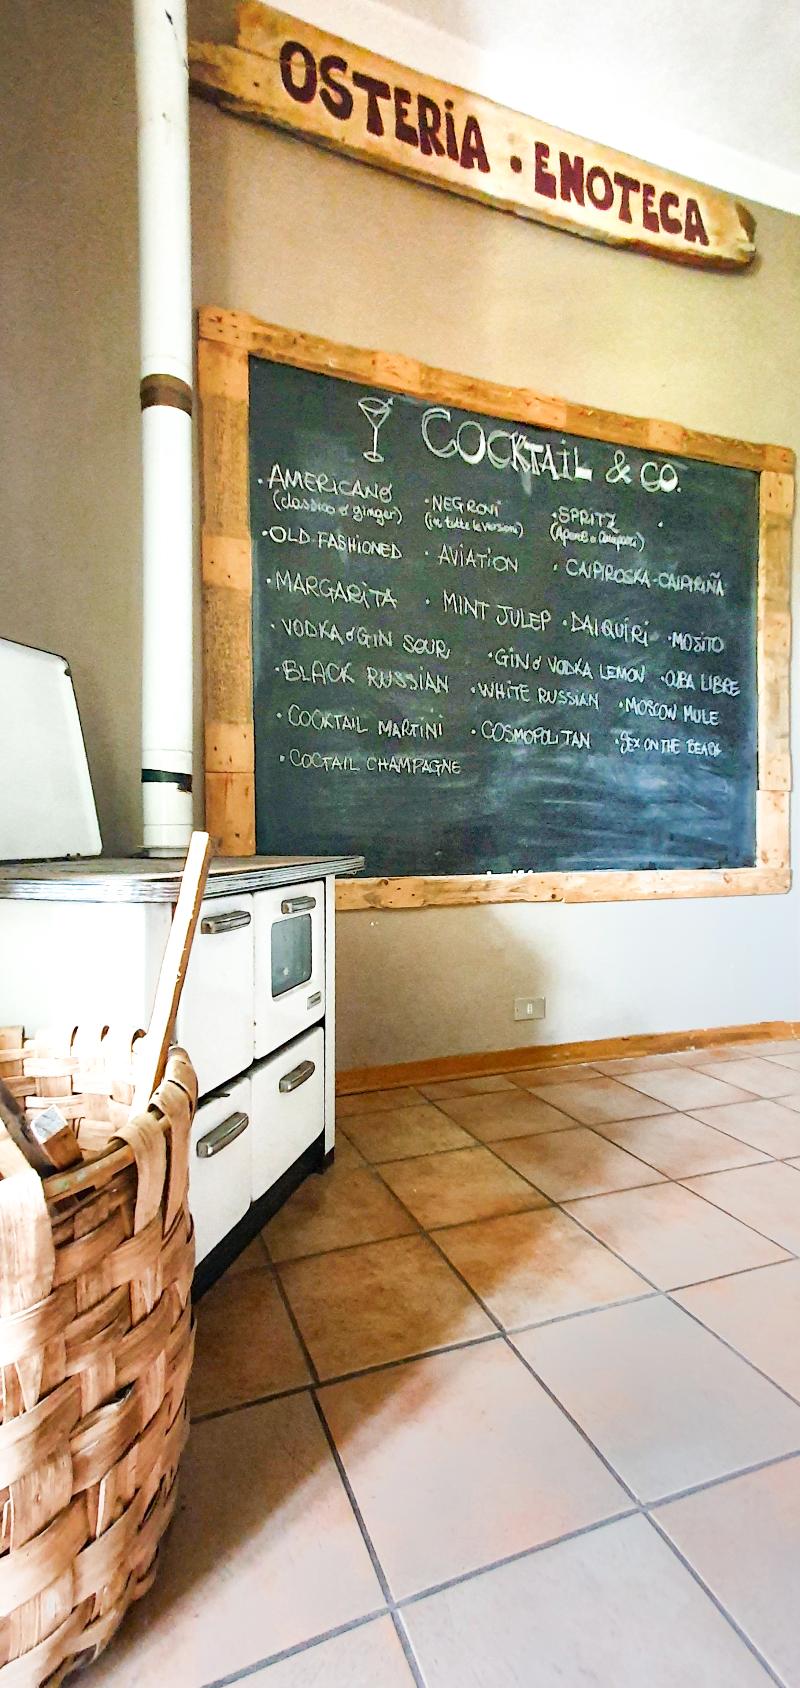 OSTERIA · ENOTECA
COCKTAIL & CO.
· AMERICANO · NEGRONI · SPRITZ ·
(classico o ginger) (in tutte le versioni) (Aperol o Campari)
· OLD FASHIONED · AVIATION · CAIPIROSKA-CAIPIRIÑA
· MARGARITA · MINT JULEP · DAIQUIRI · MOJITO
· VODKA o GIN SOUR · GIN o VODKA LEMON · CUBA LIBRE
· BLACK RUSSIAN · WHITE RUSSIAN · MOSCOW MULE
· COCKTAIL MARTINI · COSMOPOLITAN · SEX ON THE BEACH
· COCTAIL CHAMPAGNE